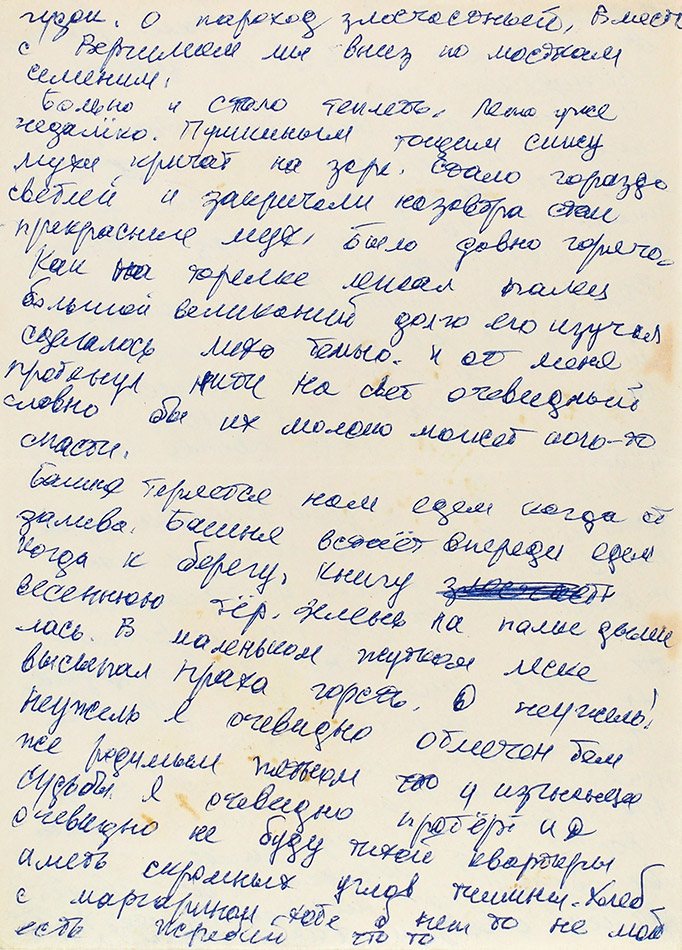 гудок. О пароход злосчастный, Вместе
с Вергилием мы вниз по мосткам
семеним.
Больно и стало теплеть. Лето уже
недалёко. Пушкиным тощим сижу
мухи кричат на заре. Стало гораздо
светлей и закричали назавтра стаи
прекрасные мух. Было давно горячо.
Как на тарелке лежал палец
большой великаний долго его изучал
сделалось мухо темно. И от меня
протянул нити на свет очевидный
словно бы их молоко может кого-то
спасти.
Башня теряется нам едем когда от
залива. Башня встаёт впереди едем
когда к берегу. Книгу
весеннюю тёр. Зелень на пальце дыми
лась. В маленьком жутком леске
высыпал праха горсть. О неужели!
неужели я очевидно обмечен был
же родимым пятном и изъязвлён
судьбы. Я очевидно
очевидно не буду тихой квартиры
иметь скромных углов тишины. Хлеб
с маргарином хотя нет то не мой
есть что то